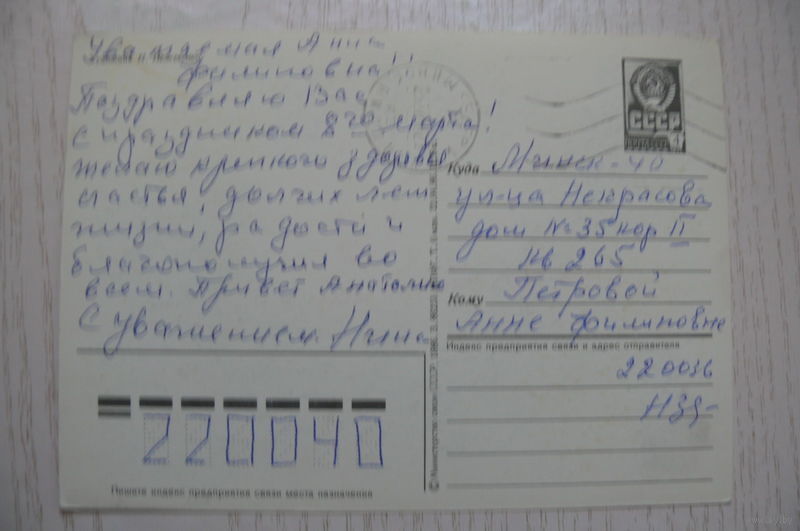 Уважаемая Анна
Филиповна!
Поздравляю Вас
с праздником 8го марта!
желаю крепкого здоровья
счастья, долгих лет
жизни, радости и
благополучия во
всем. Привет Анатолию
С уважением Нина
СССР
Куда Минск-40
улица Некрасова
дом № 35 кор II
кв 265
Кому Петровой
Анне Филиповне
Индекс предприятия связи и адрес отправителя
220036
220040
Пишите индекс предприятия связи места назначения
© Министерство связи СССР